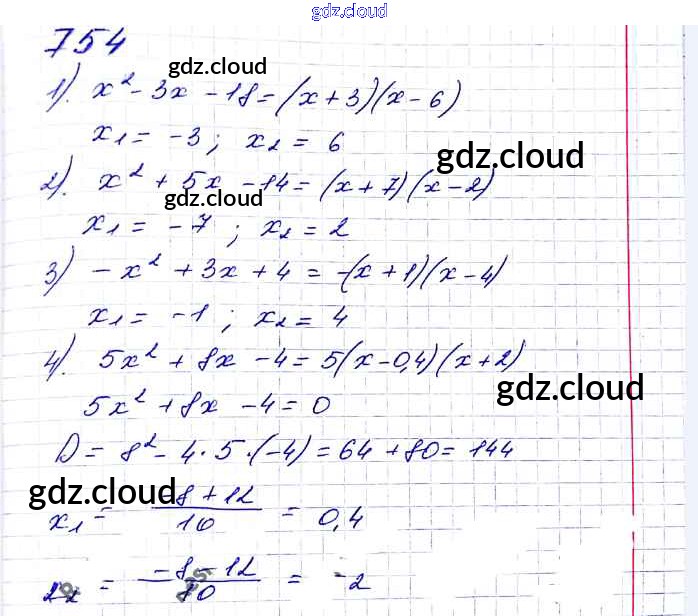 gdz.cloud
754
gdz.cloud
1). x² - 3x - 18 = (x + 3)(x - 6)
x₁ = -3; x₂ = 6
gdz.cloud
2). x² + 5x - 14 = (x + 7)(x - 2)
gdz.cloud
x₁ = -7; x₂ = 2
3) -x² + 3x + 4 = -(x + 1)(x - 4)
x₁ = -1; x₂ = 4
4). 5x² + 8x - 4 = 5(x - 0,4)(x + 2)
gdz.cloud
5x² + 8x - 4 = 0
D = 8² - 4·5·(-4) = 64 + 80 = 144
gdz.cloud
x₁ = (-8 + 12)/10 = 0,4
x₂ = (-8 - 12)/10 = -2